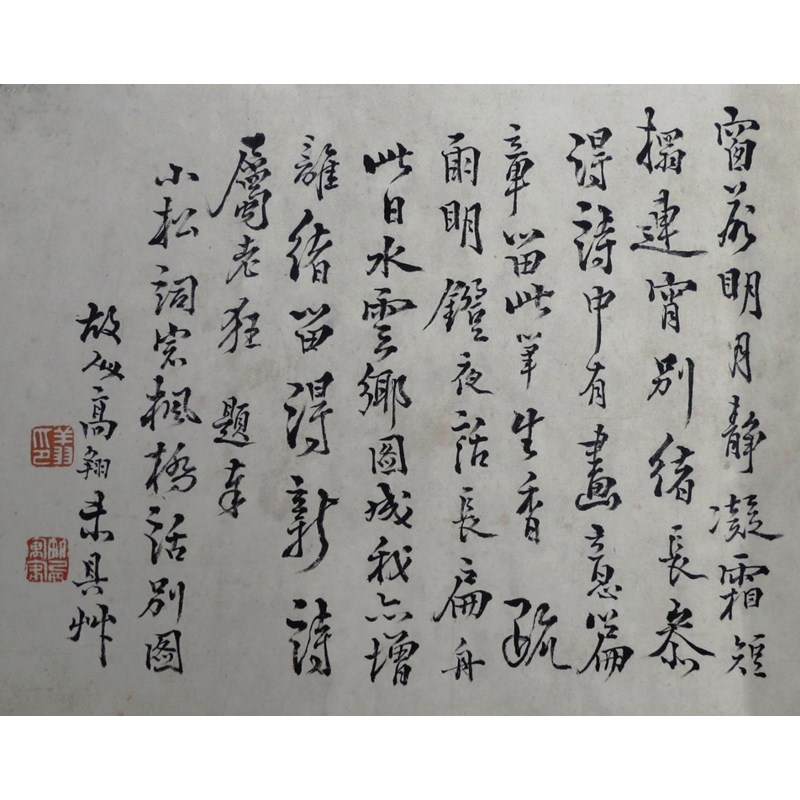 窗明月靜凝霜短
榻連宵別緒長叅
得詩中有畫意篇
章留此筆生香 疏
雨明鐙夜話長扁舟
此日水雲鄉圖成我亦增
離緒留得新詩
屬老狂 題奉
小松詞宗楓橋話別圖
高翔未具艸